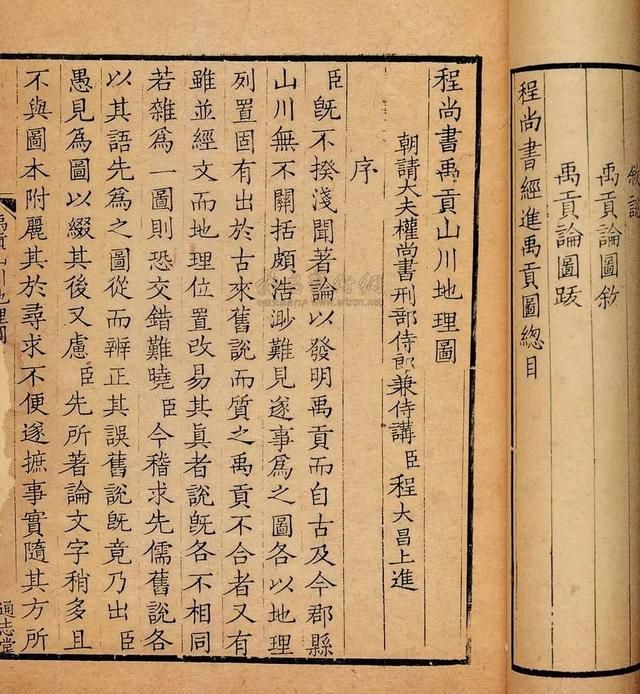 敘說
禹貢論圖敘
禹貢論圖跋
程尚書經進禹貢圖總目
程尚書禹貢山川地理圖
朝請大夫權尚書刑部侍郎兼侍講臣程大昌上進
序
臣旣不揆淺聞著論以發明禹貢而自古及今郡縣
山川無不關括頗浩渺難見遂事爲之圖各以地理
列置固有出於古來舊說而質之禹貢不合者又有
雖並經文而地理位置改易其眞者說旣各不相同
若雜爲一圖則恐交錯難曉臣今稽求先儒舊說各
以其語先爲之圖從而辨正其誤舊說旣竟乃出臣
愚見爲圖以綴其後又慮臣先所著論文字稍多且
不與圖本附麗其於尋求不便遂摭事實隨其方所
禹貢山川地理圖
通志堂